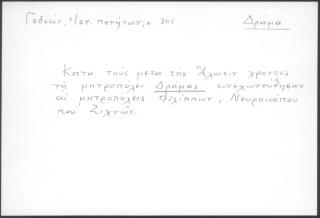 Γεδεών, Ἱστ. πενήτων, σ. 301 Δράμα
Κατὰ τοὺς μετὰ τὴν Ἅλωσιν χρόνους
τῇ μητροπόλει Δράμας συνεχωνεύθησαν
αἱ μητροπόλεις Φιλίππων, Νευροκόπου
καὶ Ζιχνῶν.